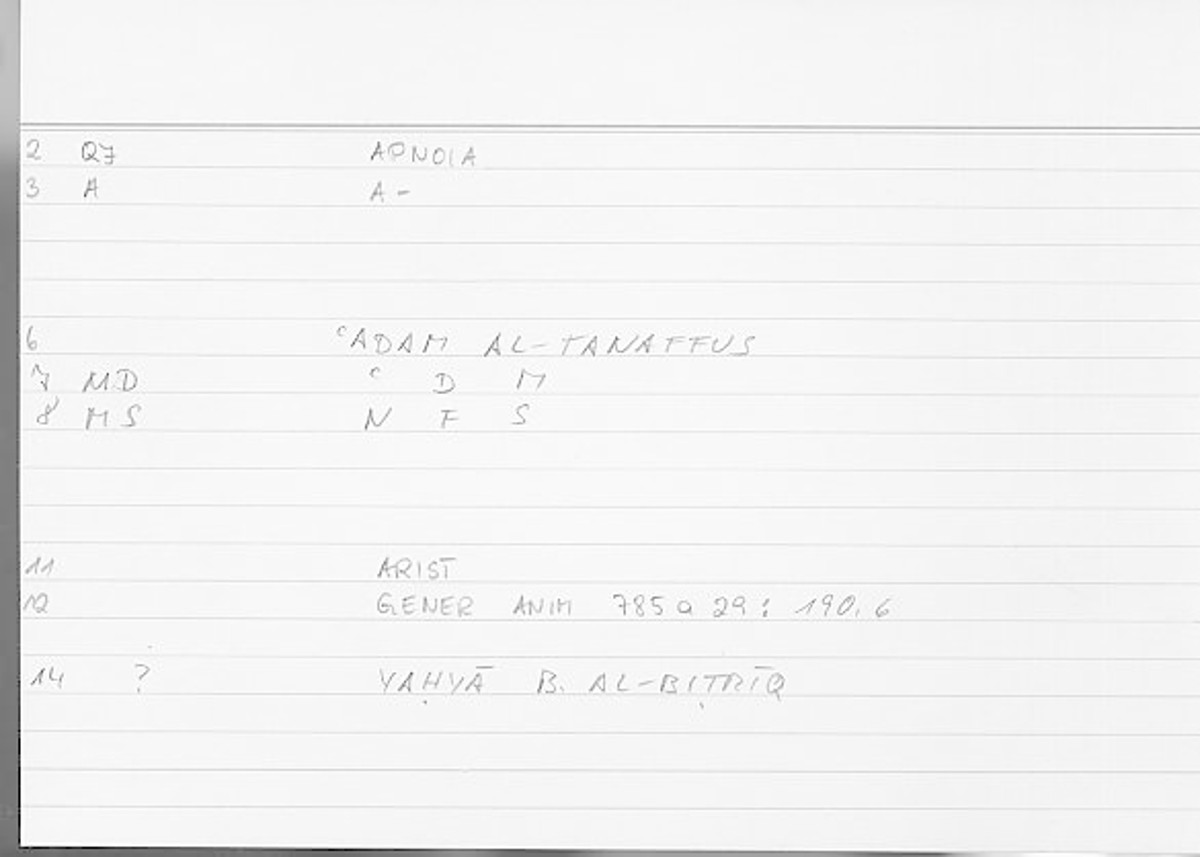 2 QJ APNOIA
3 A A-
6 ᶜADAM AL-TANAFFUS
7 MD ᶜ D M
8 MS N F S
11 ARIST
12 GENER ANIM 785 a 29 : 190.6
14 ? YAḤYĀ B. AL-BIṬRĪQ